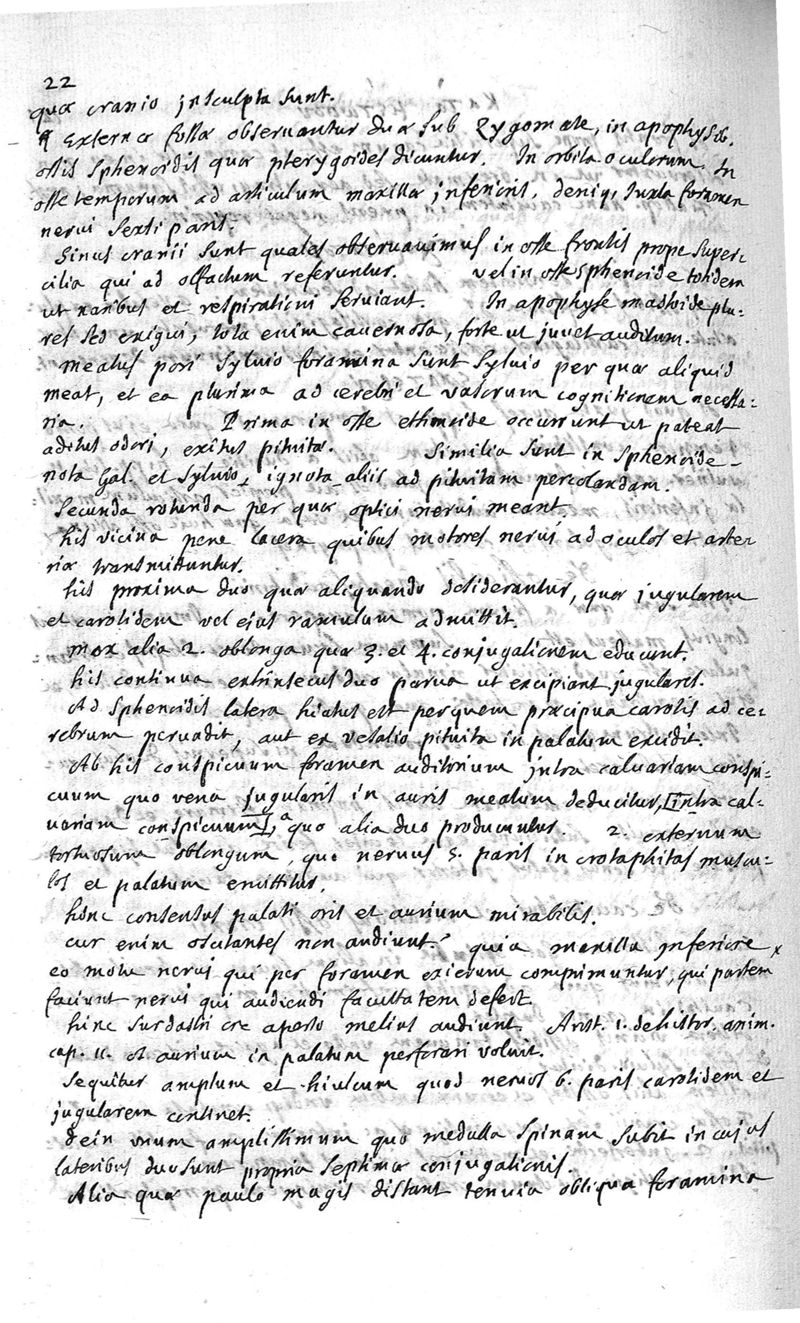 22
quæ cranio insculpta sunt.
¶ Externæ fossæ observantur duæ sub Zygomate, in apophysib.
ossis sphenoidis quæ pterygoides dicuntur. In orbita oculorum. In
osse temporum ad articulum maxillæ inferioris, deniq, iuxta foramen
nervi sexti paris.
Sinus cranii sunt quales observavimus in osse frontis prope super-
cilia qui ad olfactum referuntur. vel in osse sphenoide totidem
ut naribus et respirationi serviant. In apophyse mastoide plu:
res sed exigui, tota enim cavernosa, forte ut juvet auditum.
Meatus pori Sylvio foramina sunt Sylvio per quæ aliquid
meat, et ea plurima ad cerebri et vasorum cognitionem necessa:
ria. Prima in osse ethmoide occurrunt ut pateat
aditus odori, exitus pituitæ. Similia sunt in sphenoide -
nota Gal. et Sylvio, ignota aliis ad pituitam percolandam.
Secunda rotunda per quæ optici nervi meant
his vicina pene lacera quibus motores nervi ad oculos et arte-
riæ transmittuntur.
his proxima duo quæ aliquando desiderantur, quæ jugularem
et carotidem vel ejus ramulum admittit.
mox alia 2. oblonga quæ 3. et 4. conjugationem educunt.
his continua extrinsecus duo parva ut excipiant jugulares.
Ad sphenoidis latera hiatus est per quem præcipua carotis ad ce-
rebrum pervadit, aut ex vesalio pituita in palatum excidit.
Ab his conspicuum foramen auditorium intra calvariam conspi:
cuum quo vena jugularis in auris meatum deducitur, [intra cal-
variam conspicuum], a quo alia duo producuntur. 2. externum
tortuosum oblongum, quo nervus 5. paris in crotaphitas muscu:
los et palatum emittitur.
hinc consensus palati oris et aurium mirabilis.
cur enim oscitantes non audiunt? quia maxilla inferiore x
eo motu nervi qui per foramen exierunt comprimuntur, qui partem
faciunt nervi qui audiendi facultatem defert.
hinc surdastri ore aperto melius audiunt Arist. 1. de histor. anim.
cap. 11. et aurium in palatum perforari voluit.
Sequitur amplum et hiulcum quod nervos 6. paris carotidem et
jugularem continet.
Dein unum amplissimum quo medulla spinam subit in cujus
lateribus duo sunt propria septimæ conjugationis.
Alia quæ paulo magis distant tenuia obliqua foramina